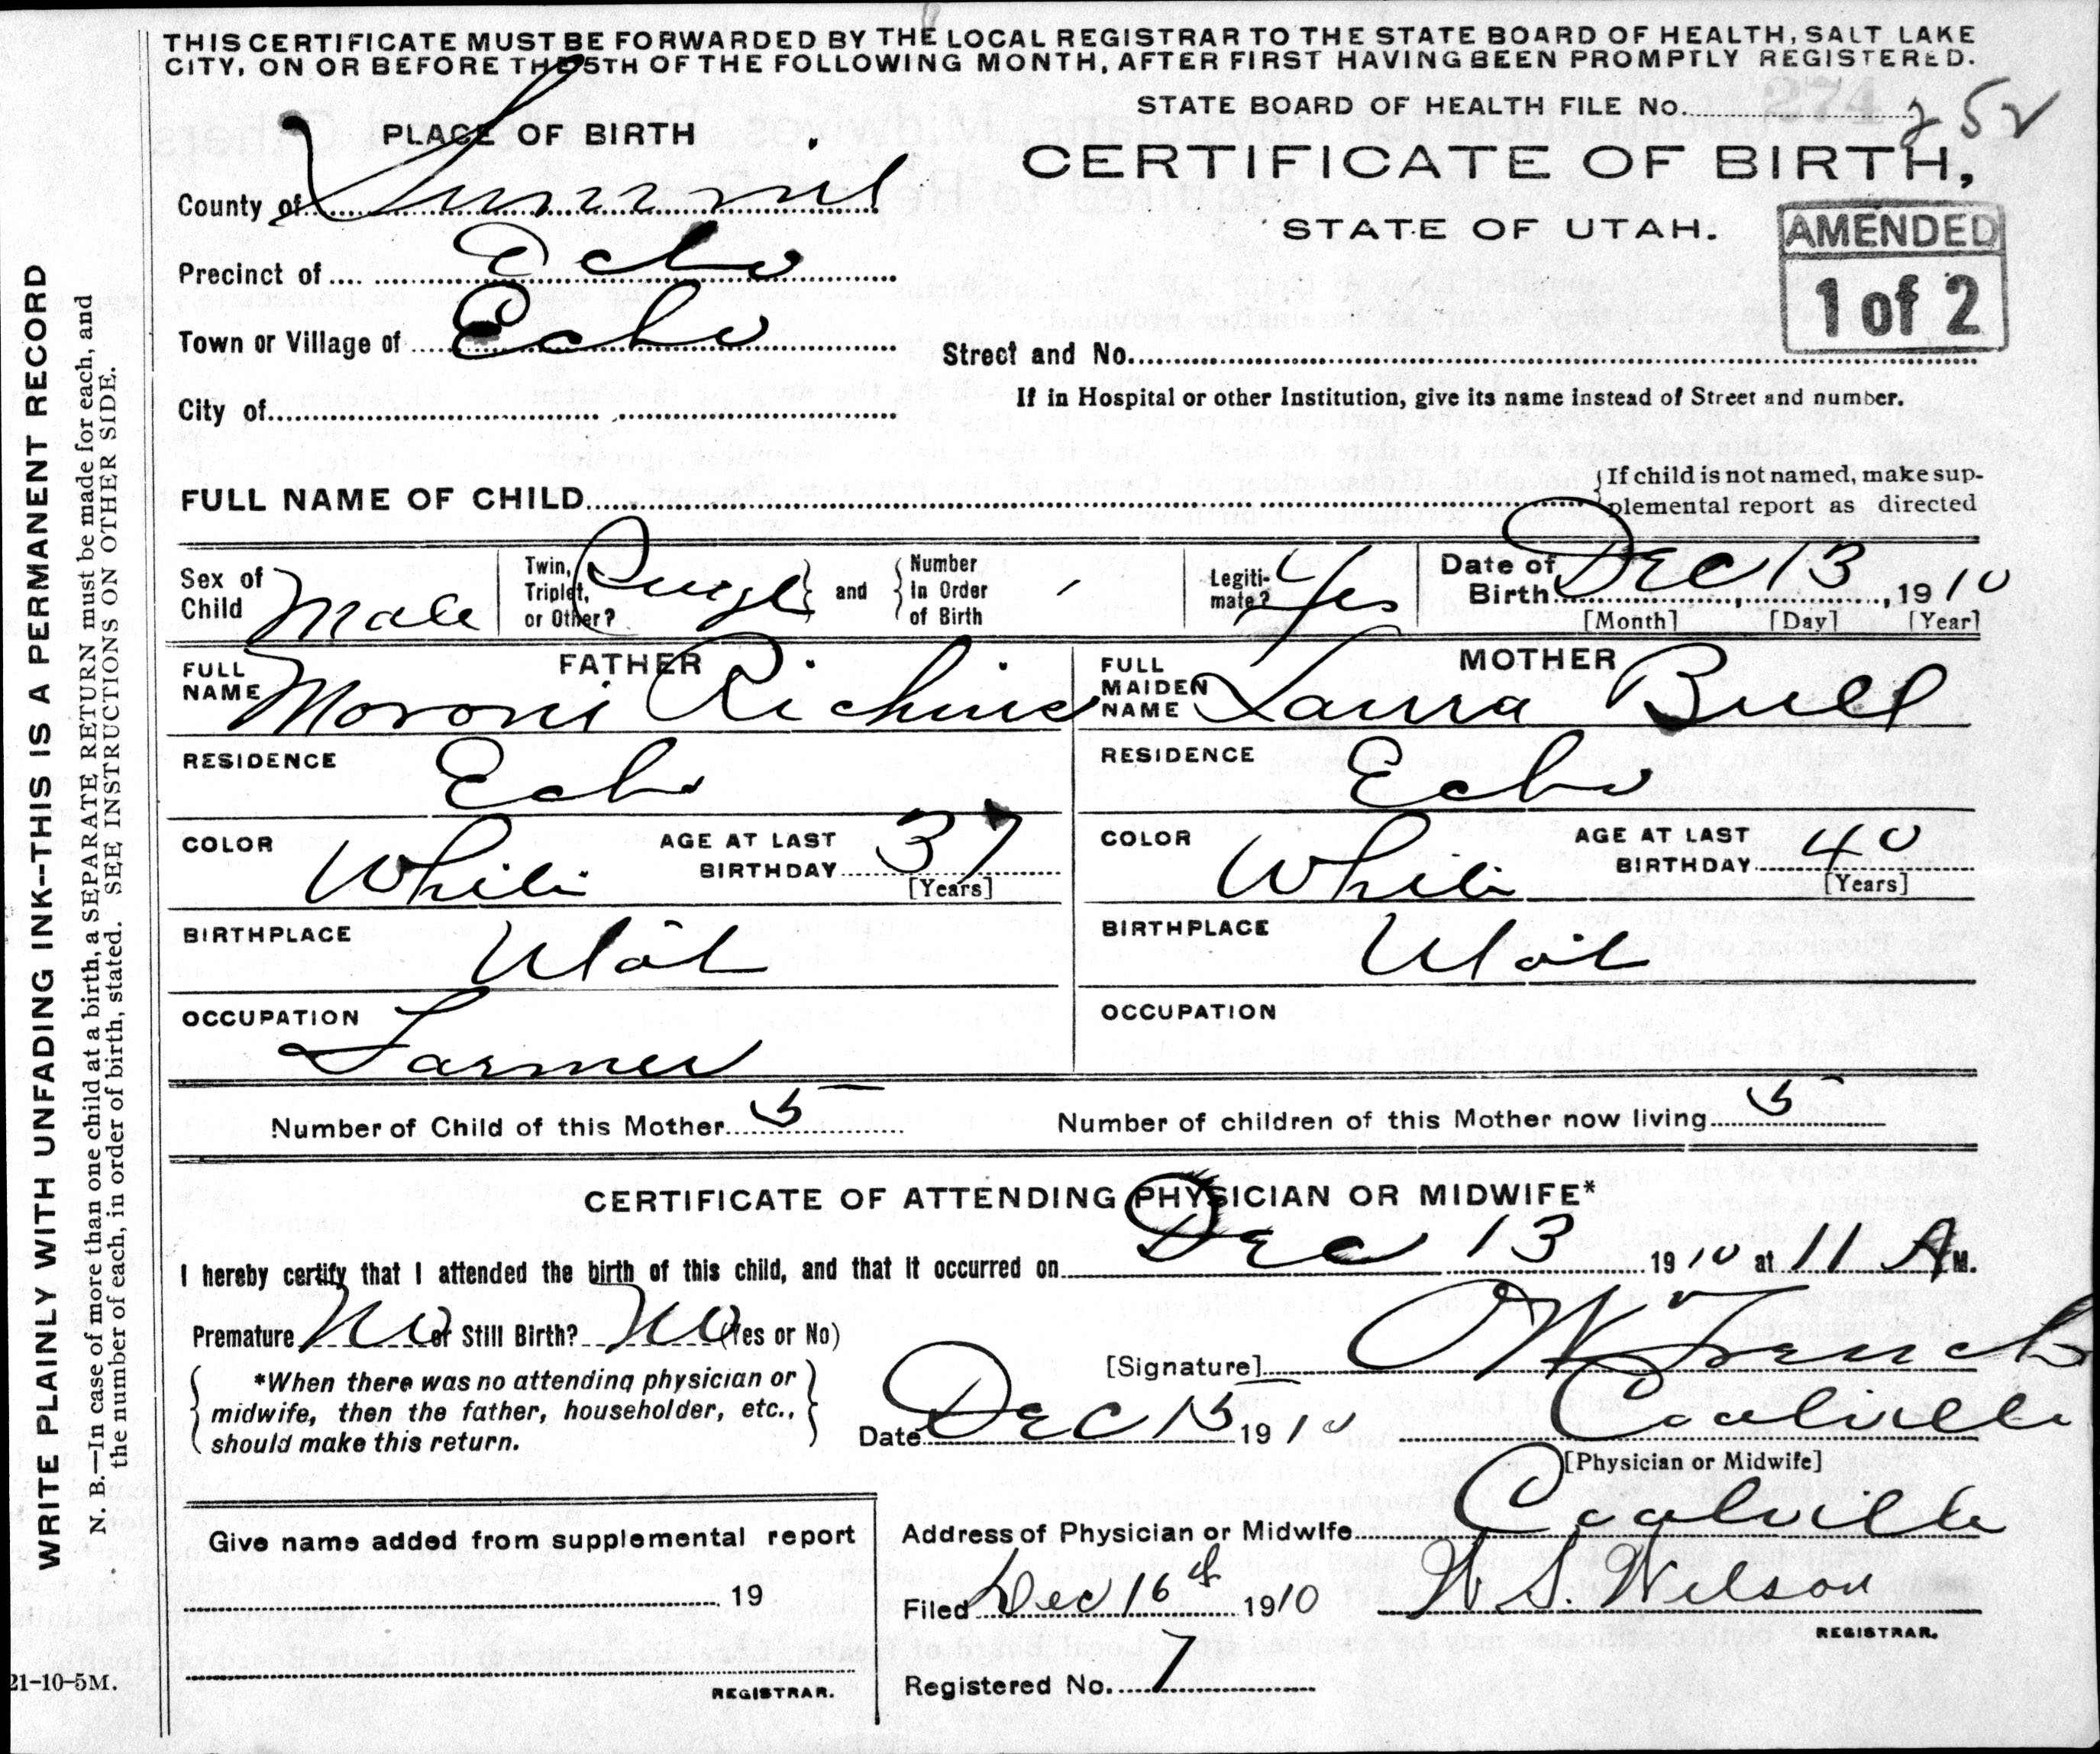 THIS CERTIFICATE MUST BE FORWARDED BY THE LOCAL REGISTRAR TO THE STATE BOARD OF HEALTH, SALT LAKE
CITY, ON OR BEFORE THE 5TH OF THE FOLLOWING MONTH, AFTER FIRST HAVING BEEN PROMPTLY REGISTERED.
STATE BOARD OF HEALTH FILE No. 274 252
PLACE OF BIRTH
CERTIFICATE OF BIRTH,
STATE OF UTAH.
AMENDED
1 of 2
County of Summit
Precinct of Echo
Town or Village of Echo
Street and No.
City of
If in Hospital or other Institution, give its name instead of Street and number.
FULL NAME OF CHILD
If child is not named, make sup-
plemental report as directed
Sex of Child Male
Twin, Triplet, or Other? Single and Number In Order of Birth
Legiti-mate? Yes
Date of Birth Dec 13, 1910
[Month] [Day] [Year]
FATHER
FULL NAME Moroni Richins
MOTHER
FULL MAIDEN NAME Laura Bull
RESIDENCE Echo
RESIDENCE Echo
COLOR White AGE AT LAST BIRTHDAY 37 [Years]
COLOR White AGE AT LAST BIRTHDAY 40 [Years]
BIRTHPLACE Utah
BIRTHPLACE Utah
OCCUPATION Farmer
OCCUPATION
Number of Child of this Mother 5
Number of children of this Mother now living 5
CERTIFICATE OF ATTENDING PHYSICIAN OR MIDWIFE*
I hereby certify that I attended the birth of this child, and that it occurred on Dec 13 1910 at 11 A M.
Premature No or Still Birth? No (Yes or No)
[Signature] French
*When there was no attending physician or
midwife, then the father, householder, etc.,
should make this return.
Date Dec 15 1910 Coalville
[Physician or Midwife]
Address of Physician or Midwife Coalville
Give name added from supplemental report
19
REGISTRAR.
Filed Dec 16th 1910 W S. Wilson
REGISTRAR.
Registered No. 7
21-10-5M.
WRITE PLAINLY WITH UNFADING INK--THIS IS A PERMANENT RECORD
N. B.—In case of more than one child at a birth, a SEPARATE RETURN must be made for each, and
the number of each, in order of birth, stated. SEE INSTRUCTIONS ON OTHER SIDE.